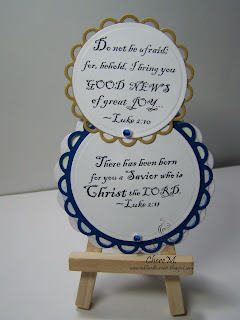 Do not be afraid;
for, behold, I bring you
GOOD NEWS
of great JOY...
~Luke 2:10
There has been born
for you a Savior who is
Christ the LORD.
~Luke 2:11
Chere M.